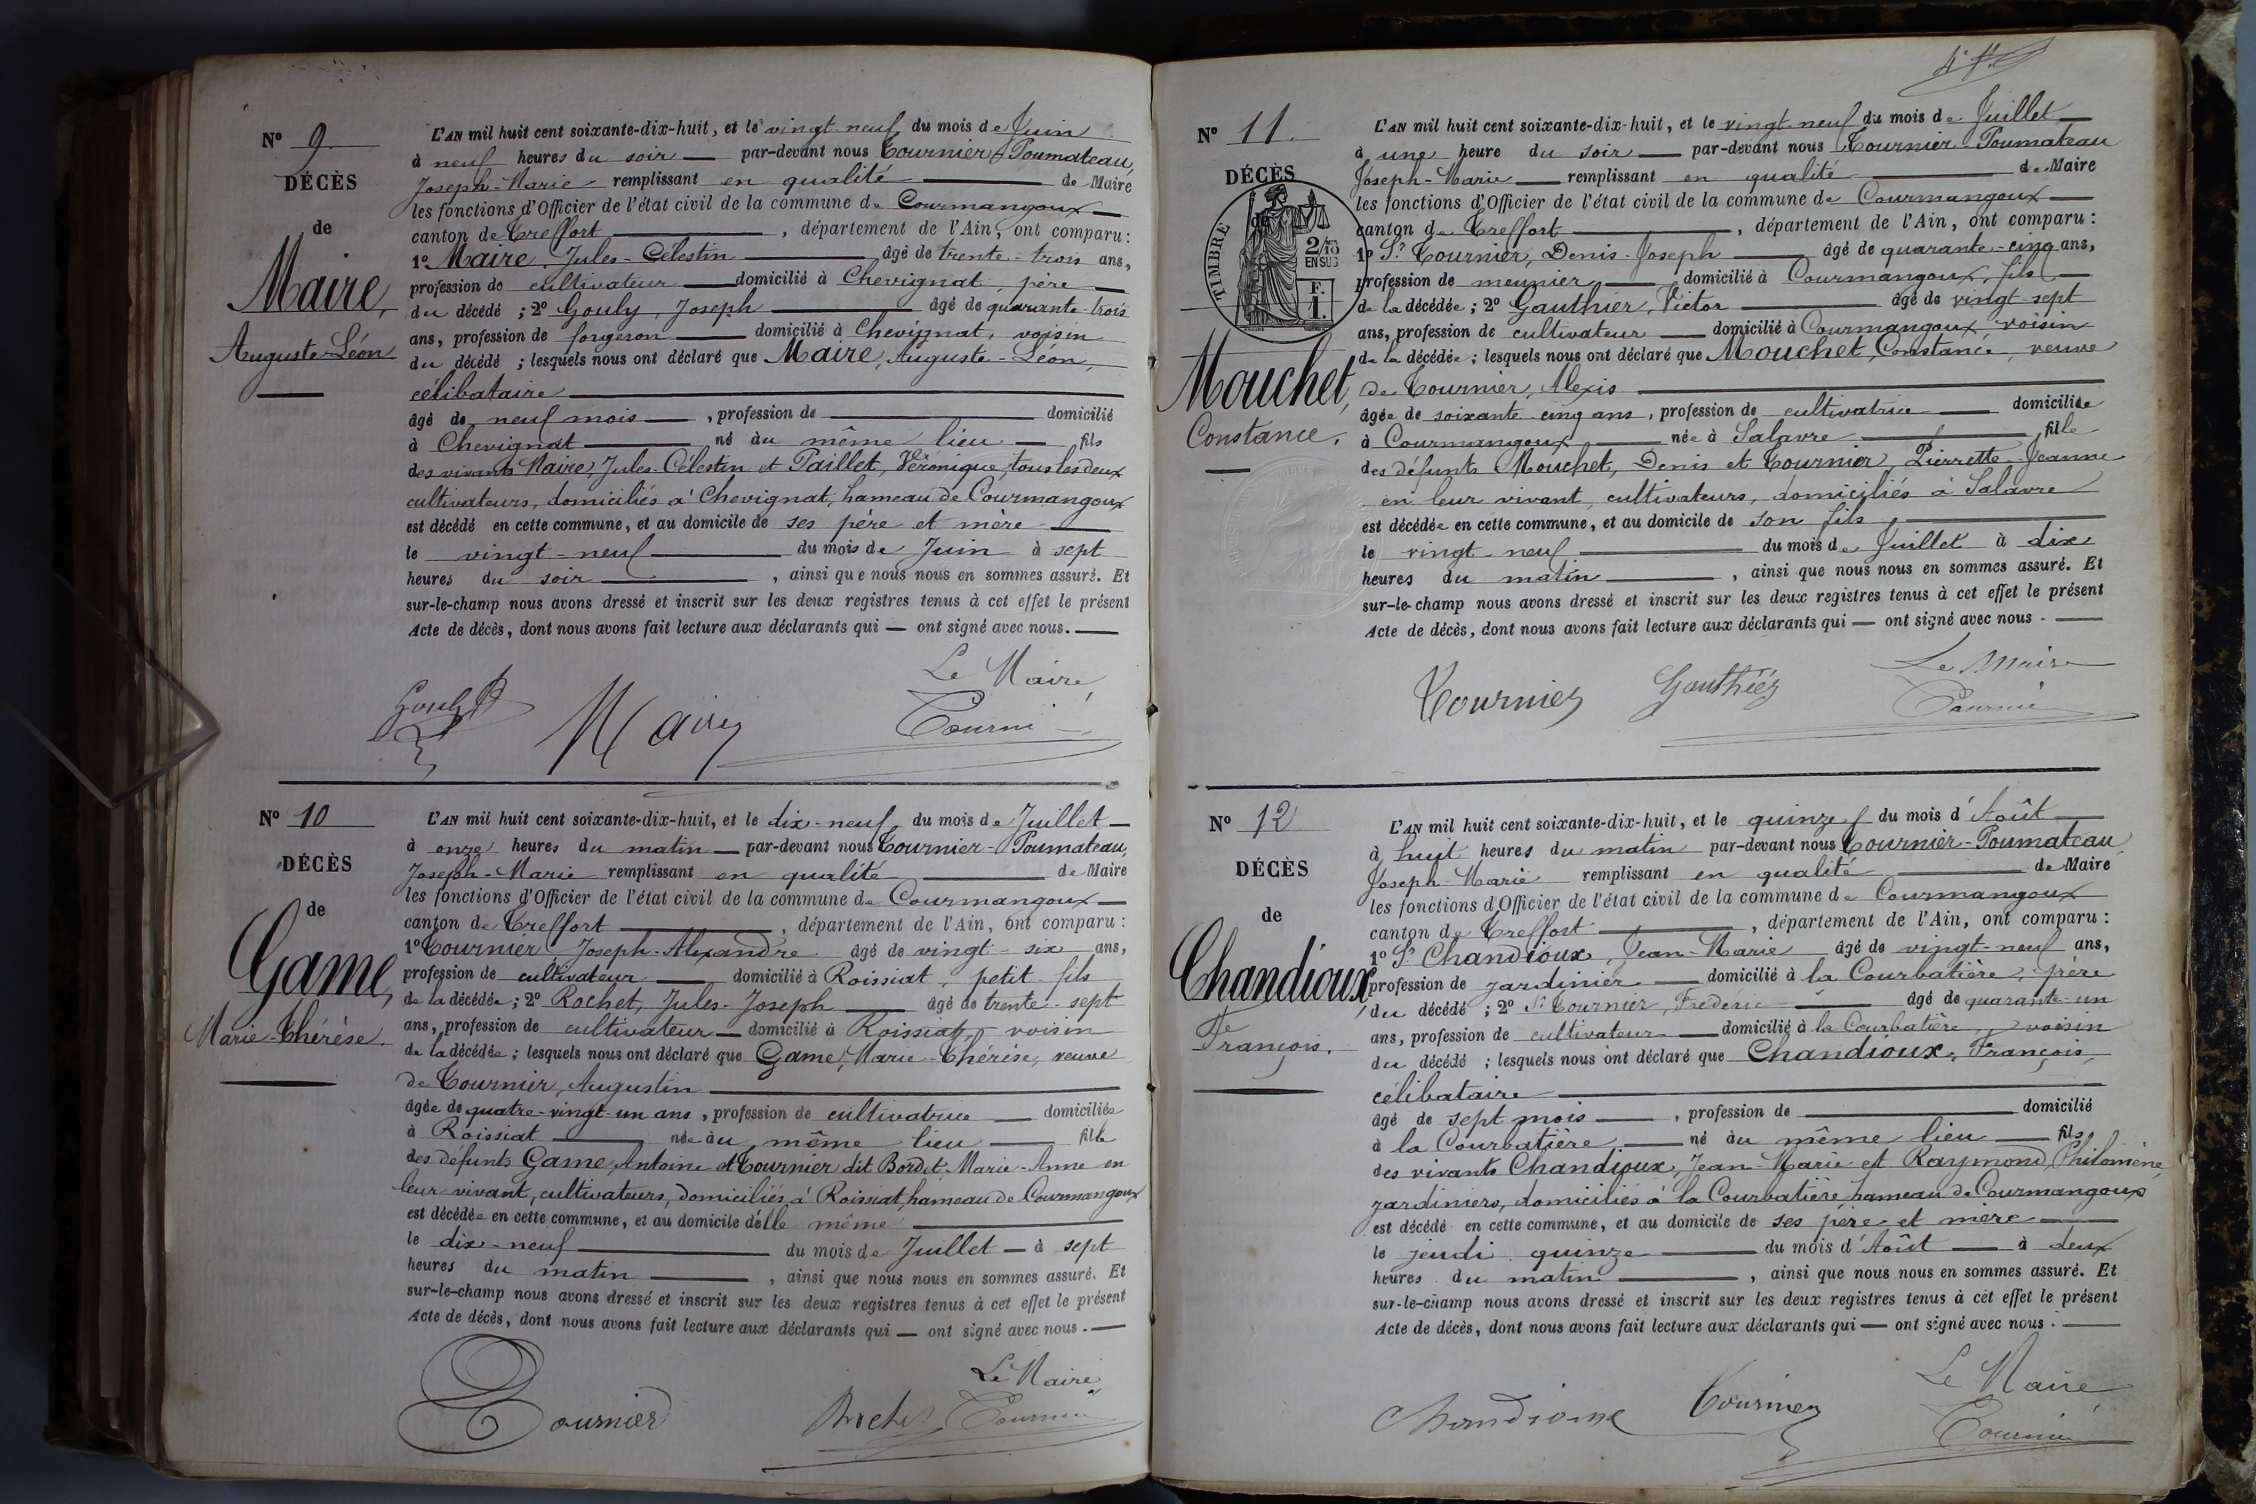 Nº 9.
DÉCÈS
de
Maire,
Auguste-Léon
L'AN mil huit cent soixante-dix-huit, et le vingt neuf du mois de Juin
à neuf heures du soir — par-devant nous Tournier-Poumateau,
Joseph-Marie remplissant en qualité — de Maire
les fonctions d'Officier de l'état civil de la commune de Courmangoux —
canton de Treffort —, département de l'Ain, ont comparu :
1º Maire, Jules-Célestin — âgé de trente-trois ans,
profession de cultivateur — domicilié à Chevignat, père —
du décédé ; 2º Gouly, Joseph — âgé de quarante-trois
ans, profession de forgeron — domicilié à Chevignat, voisin
du décédé ; lesquels nous ont déclaré que Maire, Auguste-Léon,
célibataire —
âgé de neuf mois —, profession de — domicilié
à Chevignat — né au même lieu — fils
des vivants Maire, Jules-Célestin et Paillet, Véronique, tous les deux
cultivateurs, domiciliés à Chevignat, hameau de Courmangoux
est décédé en cette commune, et au domicile de ses père et mère —
le vingt-neuf — du mois de Juin à sept
heures du soir —, ainsi que nous nous en sommes assuré. Et
sur-le-champ nous avons dressé et inscrit sur les deux registres tenus à cet effet le présent
Acte de décès, dont nous avons fait lecture aux déclarants qui — ont signé avec nous. —
Le Maire,
Gouly Maire Tournier
Nº 10
DÉCÈS
de
Game,
Marie-Thérèse.
L'AN mil huit cent soixante-dix-huit, et le dix-neuf du mois de Juillet —
à onze heures du matin — par-devant nous Tournier-Poumateau,
Joseph-Marie remplissant en qualité — de Maire
les fonctions d'Officier de l'état civil de la commune de Courmangoux —
canton de Treffort —, département de l'Ain, ont comparu :
1º Tournier, Joseph-Alexandre âgé de vingt-six ans,
profession de cultivateur — domicilié à Roissiat, petit-fils
de la décédée ; 2º Rochet, Jules-Joseph — âgé de trente-sept
ans, profession de cultivateur — domicilié à Roissiat, voisin
de la décédée ; lesquels nous ont déclaré que Game, Marie-Thérèse, veuve
de Tournier, Augustin —
âgée de quatre-vingt-un ans, profession de cultivatrice — domiciliée
à Roissiat — née au même lieu — fille
des défunts Game, Antoine et Tournier dit Bordet, Marie-Anne en
leur vivant, cultivateurs, domiciliés à Roissiat, hameau de Courmangoux
est décédée en cette commune, et au domicile d'elle même —
le dix-neuf — du mois de Juillet — à sept
heures du matin —, ainsi que nous nous en sommes assuré. Et
sur-le-champ nous avons dressé et inscrit sur les deux registres tenus à cet effet le présent
Acte de décès, dont nous avons fait lecture aux déclarants qui — ont signé avec nous. —
Le Maire,
Tournier Rochet Tournier
Nº 11.
DÉCÈS
de
TIMBRE
2/10
EN SUS
F.
1.
Mouchet,
Constance.
L'AN mil huit cent soixante-dix-huit, et le vingt-neuf du mois de Juillet —
à une heure du soir — par-devant nous Tournier Poumateau
Joseph-Marie — remplissant en qualité — de Maire
les fonctions d'Officier de l'état civil de la commune de Courmangoux —
canton de Treffort —, département de l'Ain, ont comparu :
1º Sr Tournier, Denis-Joseph — âgé de quarante-cinq ans,
profession de meunier — domicilié à Courmangoux, fils —
de la décédée ; 2º Gauthier, Victor — âgé de vingt-sept
ans, profession de cultivateur — domicilié à Courmangoux voisin
de la décédée ; lesquels nous ont déclaré que Mouchet, Constance, veuve
de Tournier, Alexis —
âgée de soixante-cinq ans, profession de cultivatrice — domiciliée
à Courmangoux — née à Salavre — fille
des défunts Mouchet, Denis et Tournier, Pierrette-Jeanne
en leur vivant, cultivateurs, domiciliés à Salavre
est décédée en cette commune, et au domicile de son fils, —
le vingt-neuf — du mois de Juillet à dix
heures du matin —, ainsi que nous nous en sommes assuré. Et
sur-le-champ nous avons dressé et inscrit sur les deux registres tenus à cet effet le présent
Acte de décès, dont nous avons fait lecture aux déclarants qui — ont signé avec nous. —
Le Maire
Tournier Gauthier Tournier
Nº 12
DÉCÈS
de
Chandioux,
François.
L'AN mil huit cent soixante-dix-huit, et le quinze du mois d'Août —
à huit heures du matin par-devant nous Tournier-Poumateau
Joseph-Marie remplissant en qualité — de Maire
les fonctions d'Officier de l'état civil de la commune de Courmangoux
canton de Treffort —, département de l'Ain, ont comparu :
1º Sr Chandioux, Jean-Marie âgé de vingt-neuf ans,
profession de jardinier — domicilié à la Courbatière, père
du décédé ; 2º Sr Tournier, Fréderic — âgé de quarante-un
ans, profession de cultivateur — domicilié à la Courbatière, voisin
du décédé ; lesquels nous ont déclaré que Chandioux, François,
célibataire —
âgé de sept mois —, profession de — domicilié
à la Courbatière — né au même lieu — fils
des vivants Chandioux, Jean-Marie et Raymond, Philomène,
jardiniers, domiciliés à la Courbatière hameau de Courmangoux
est décédé en cette commune, et au domicile de ses père et mère —
le jeudi quinze — du mois d'Août — à deux
heures du matin —, ainsi que nous nous en sommes assuré. Et
sur-le-champ nous avons dressé et inscrit sur les deux registres tenus à cet effet le présent
Acte de décès, dont nous avons fait lecture aux déclarants qui — ont signé avec nous. —
Le Maire
Chandioux Tournier Tournier